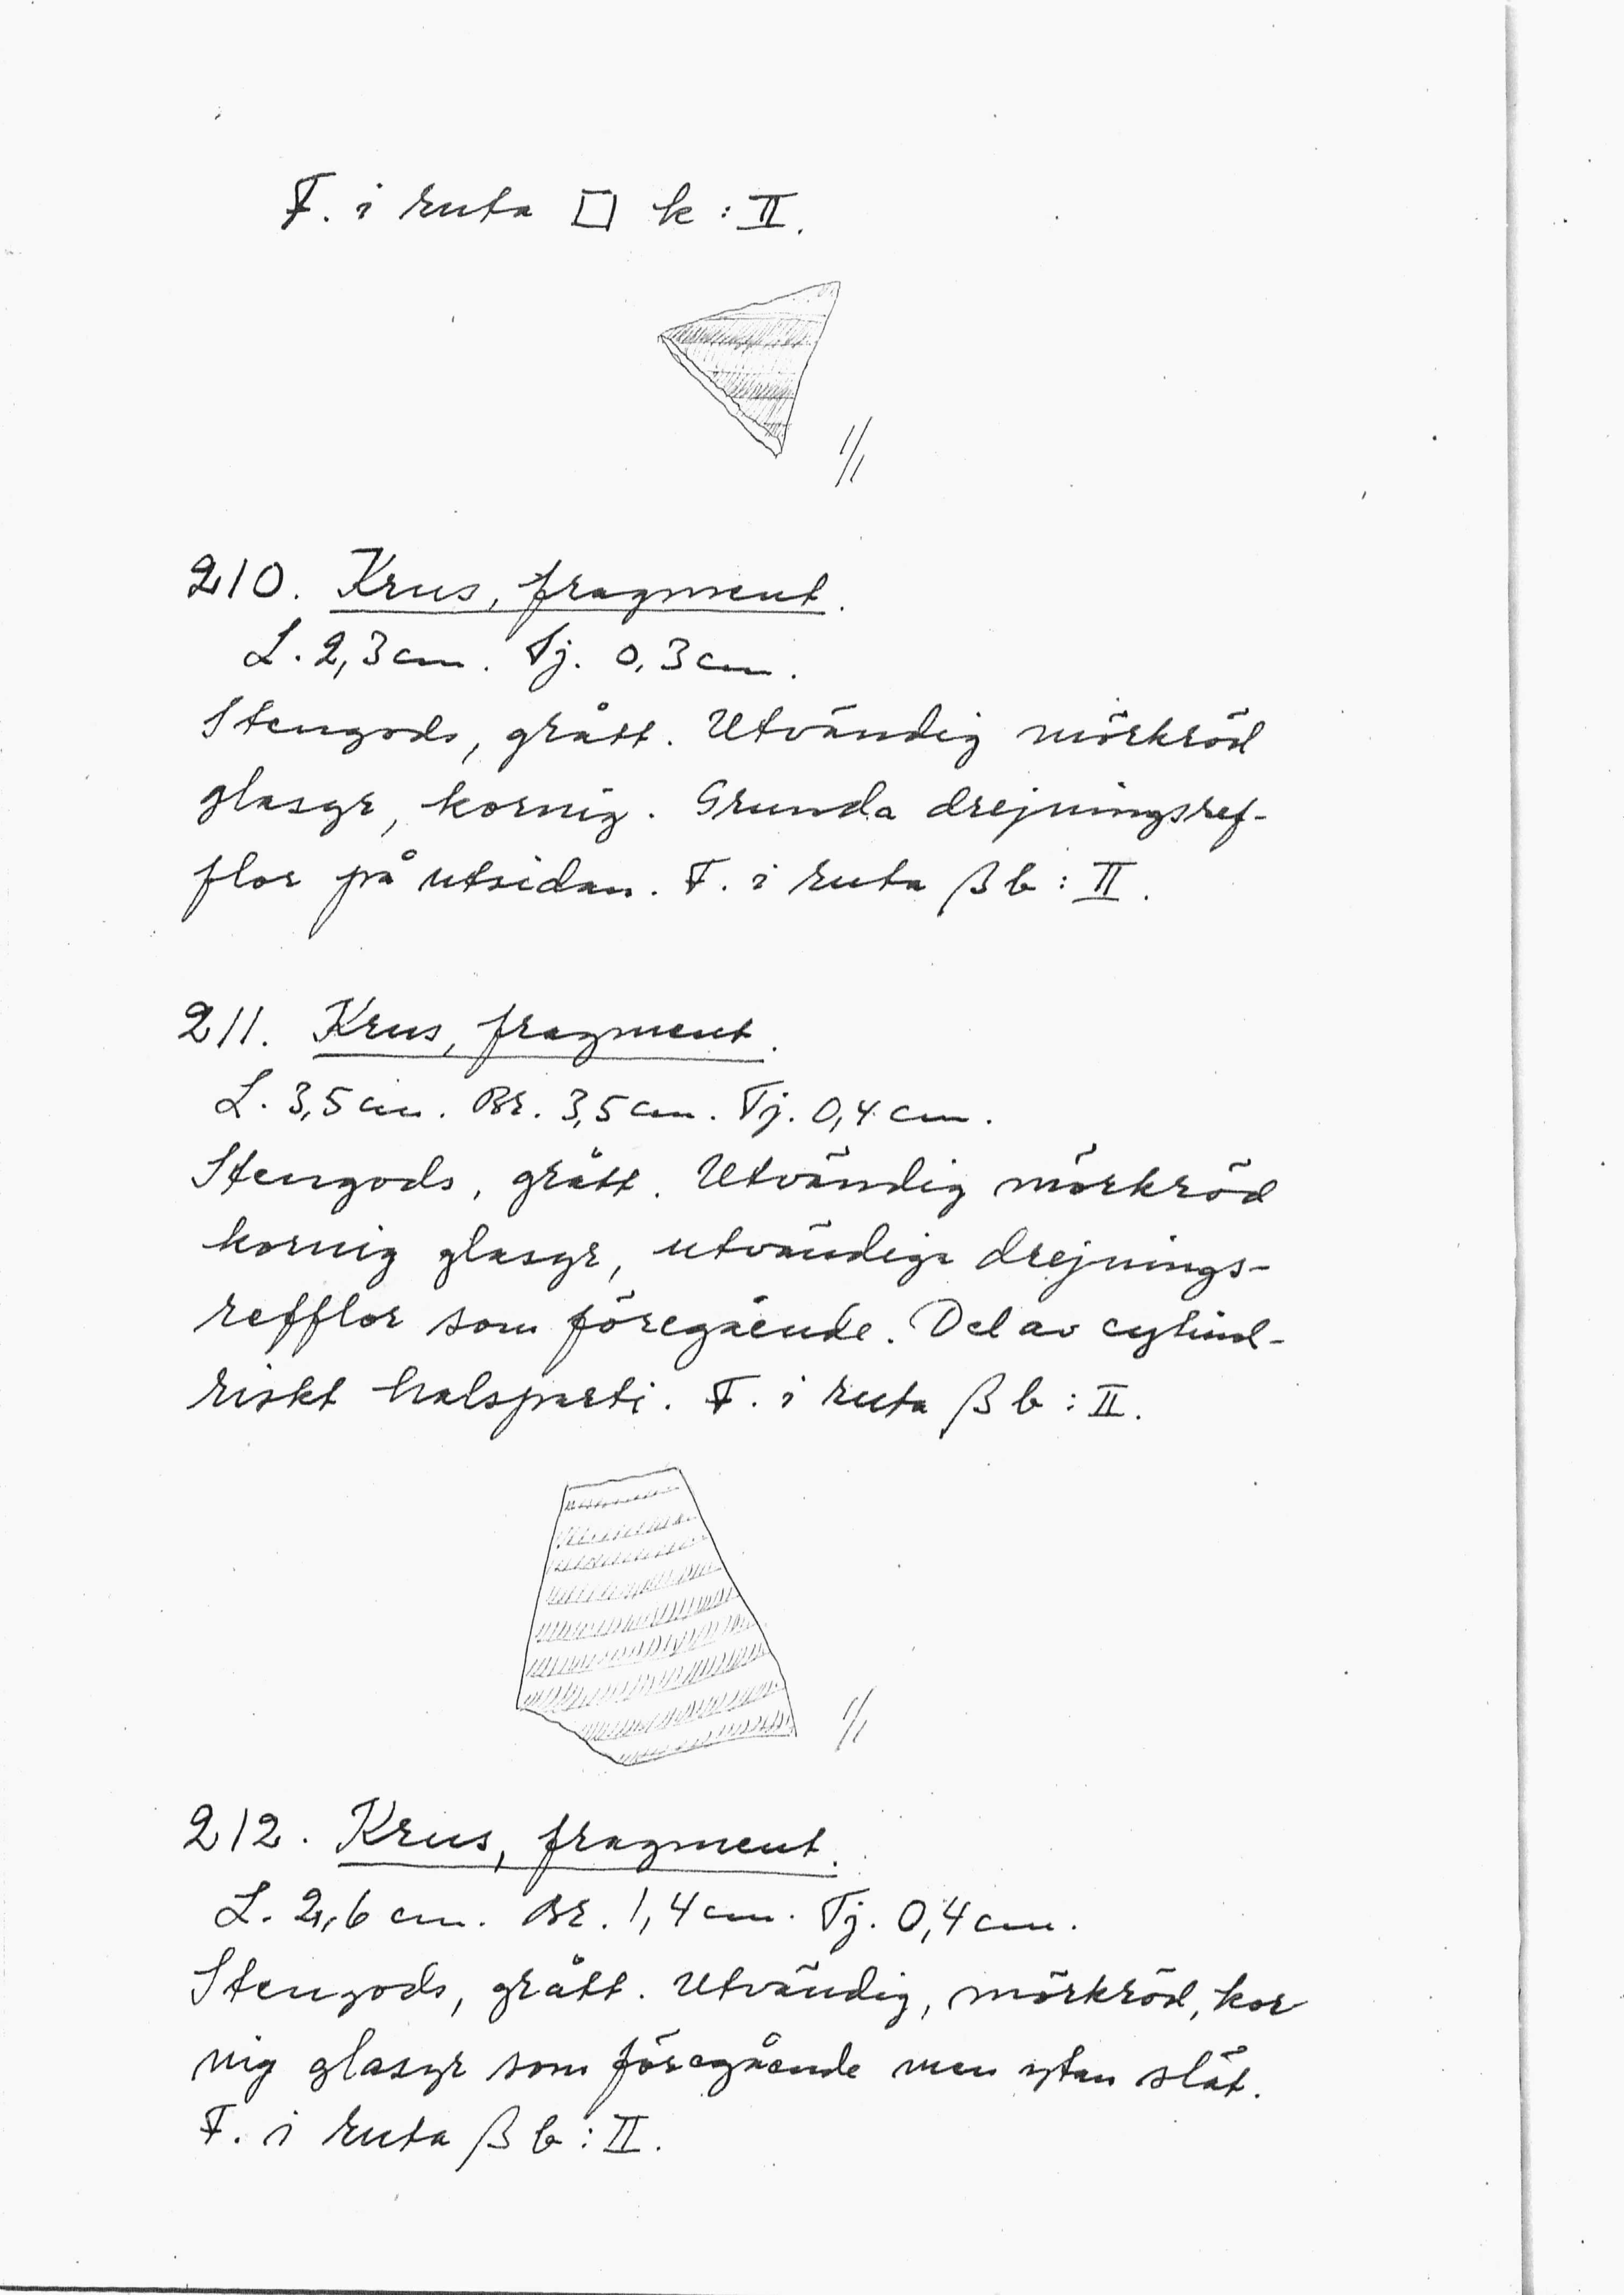 F. i ruta □ k : II.
1/1
210. Krus, fragment.
L. 2,3 cm. Tj. 0,3 cm.
Stengods, grått. Utvändig mörkröd
glasyr, kornig. Grunda drejningsref-
flor på utsidan. F. i ruta β b : II.
211. Krus, fragment.
L. 3,5 cm. Br. 3,5 cm. Tj. 0,4 cm.
Stengods, grått. Utvändig mörkröd
kornig glasyr, utvändiga drejnings-
refflor som föregående. Del av cylind-
riskt halsparti. F. i ruta β b : II.
1/1
212. Krus, fragment.
L. 2,6 cm. Br. 1,4 cm. Tj. 0,4 cm.
Stengods, grått. Utvändig, mörkröd, kor
nig glasyr som föregående men ytan slät.
F. i ruta β b : II.